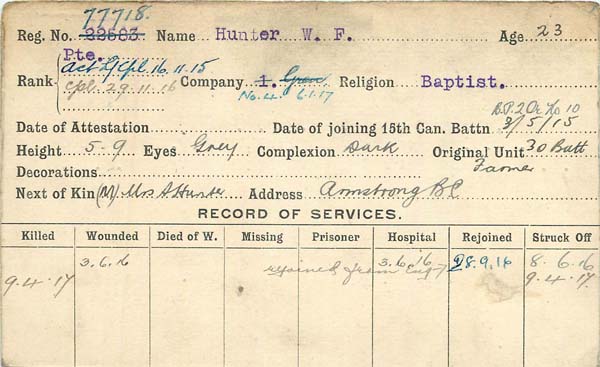 77718.
Reg. No. 22583 Name Hunter W. F. Age 23
Pte.
act L/Cpl 16.11.15
Rank Cpl. 29.11.16 Company 1. Religion Baptist.
No. 4. 6.1.17
B.P. 2 Or No 10
Date of Attestation Date of joining 15th Can. Battn 3/5/15
Height 5-9 Eyes Grey Complexion Dark Original Unit 30 Batt
Decorations Farmer
Next of Kin (M) Mrs S Hunter Address Armstrong BC
RECORD OF SERVICES.
Killed Wounded Died of W. Missing Prisoner Hospital Rejoined Struck Off
3.6.16 3.6.16 28.9.16 8.6.16
9.4.17 rejoined from 9.4.17